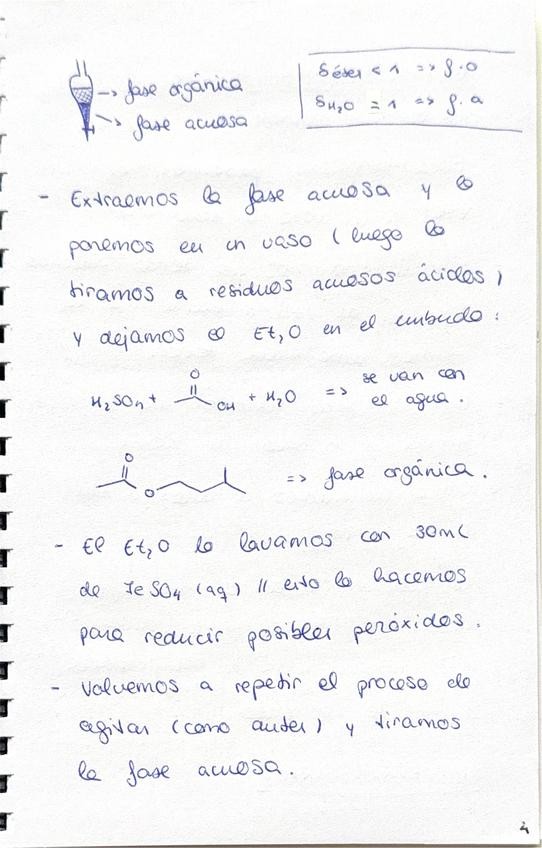 → fase orgánica
→ fase acuosa
δ éter < 1 => f.o
δ H₂O = 1 => f.a
- Extraemos la fase acuosa y lo
ponemos en un vaso (luego lo
tiramos a residuos acuosos ácidos)
y dejamos el Et₂O en el embudo:
H₂SO₄ + O OH + H₂O => se van con
el agua.
O O => fase orgánica.
- El Et₂O lo lavamos con 30mL
de FeSO₄ (aq) // esto lo hacemos
para reducir posibles peróxidos.
- Volvemos a repetir el proceso de
agitar (como antes) y tiramos
la fase acuosa.